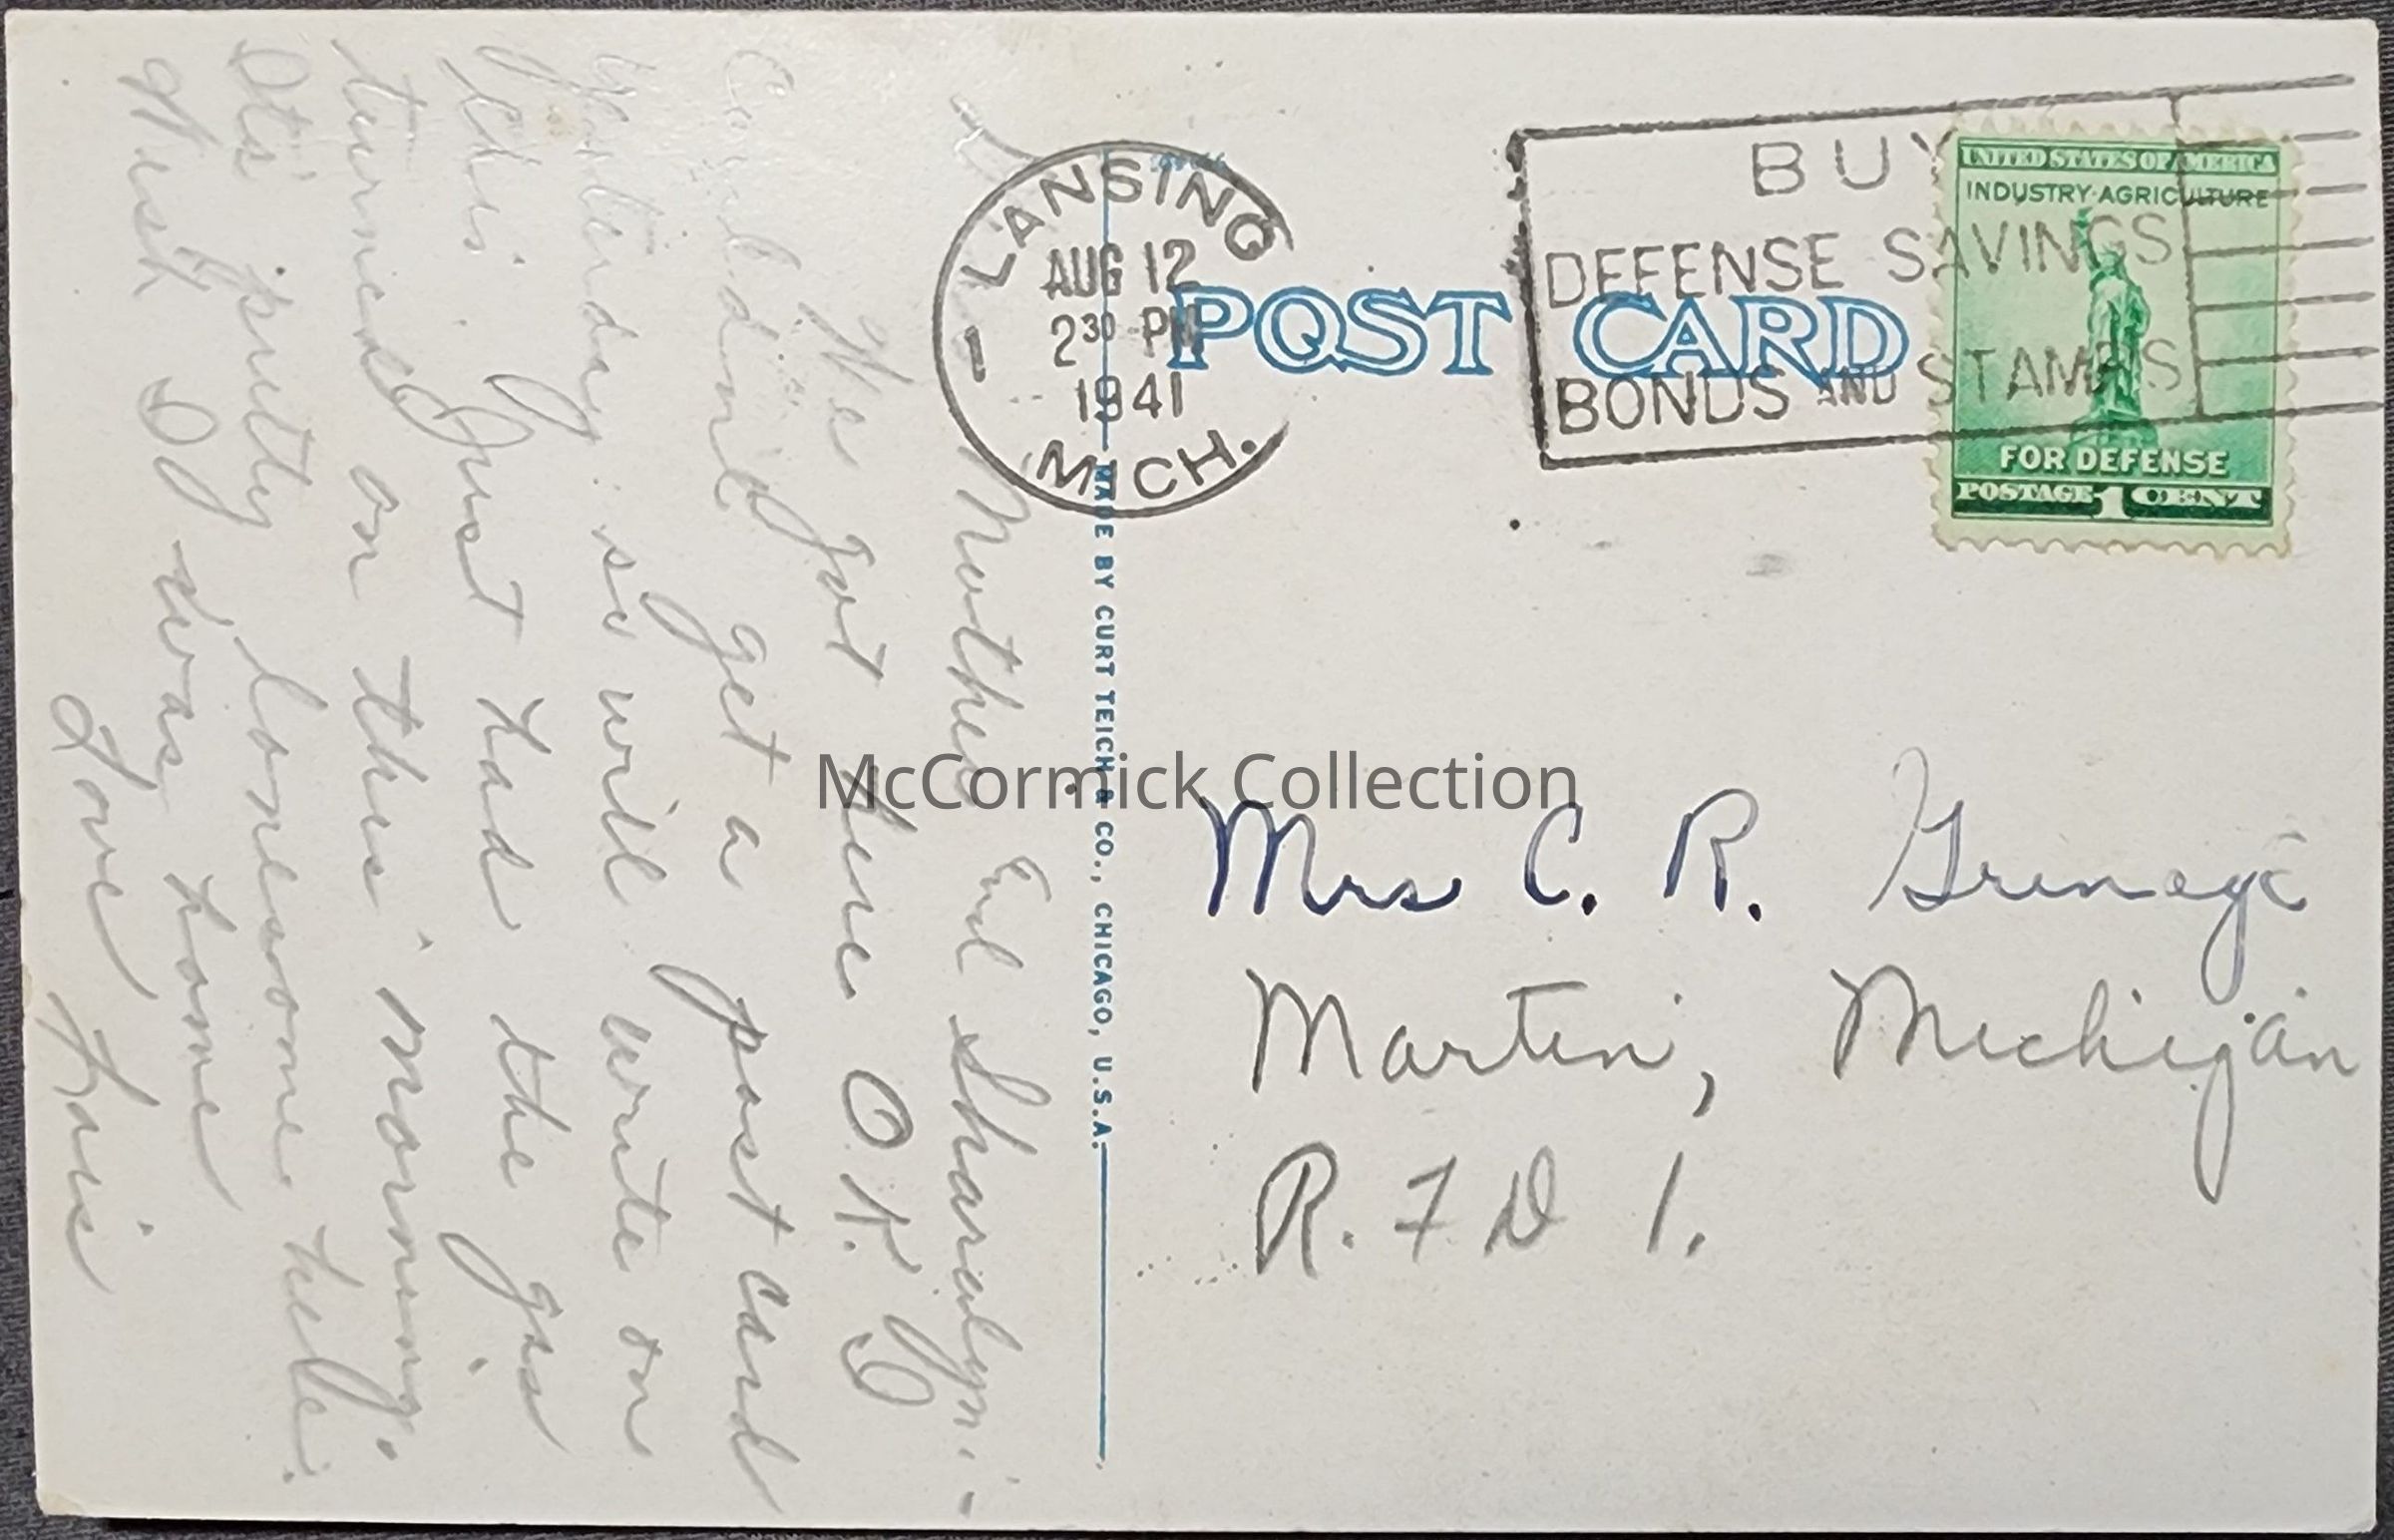 Mother and Sharalyn:-
We got here O.K.
Couldn't get a post card
yesterday so will write on
this. Just had the gas
turned on this morning.
It's pretty lonesome here.
Wish I was home
Love
LANSING
AUG 12
2 30 PM
1941
MICH.
BUY
DEFENSE SAVINGS
BONDS AND STAMPS
UNITED STATES OF AMERICA
INDUSTRY·AGRICULTURE
FOR DEFENSE
POSTAGE 1 CENT
POST CARD
MADE BY CURT TEICH & CO., CHICAGO, U.S.A.
McCormick Collection
Mrs C. R.
Martin, Michigan
R. F D 1.